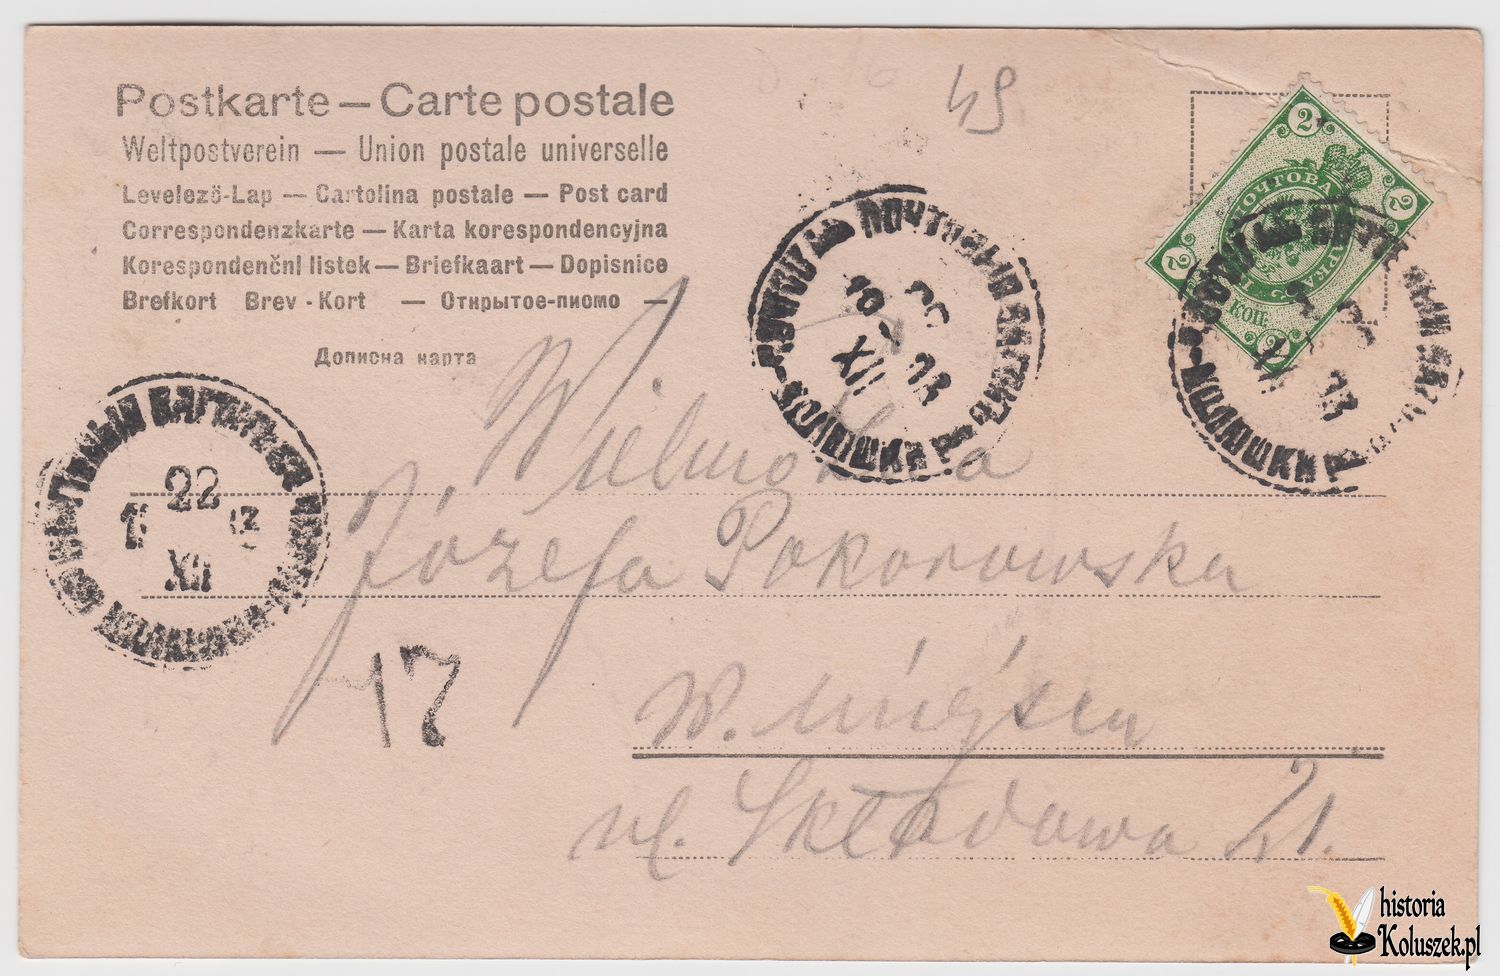 Postkarte — Carte postale
Weltpostverein — Union postale universelle
Levelező-Lap — Cartolina postale — Post card
Correspondenzkarte — Karta korespondencyjna
Korespondenční listek — Briefkaart — Dopisnice
Brefkort Brev-Kort — Открытое-писмо —
Дописна карта
49
2 2 2 2
ПОЧТОВАЯ МАРКА
КОП.
ПОЧТОВЫЙ ВАГОНЪ
XII
КОЛЮШКИ
КОЛЮШКИ
ПОЧТОВЫЙ ВАГОНЪ
22
XII
Wielmożna
Józefa Pokorowska
17
w. miejscu
ul. Składowa 21.
historia
Koluszek.pl